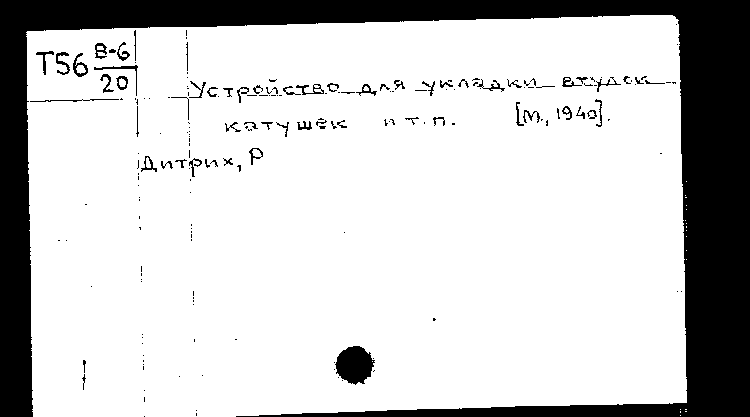 Т56 В-6
20
Устройство для укладки втулок
катушек и т.п. [М., 1940].
Дитрих, Р